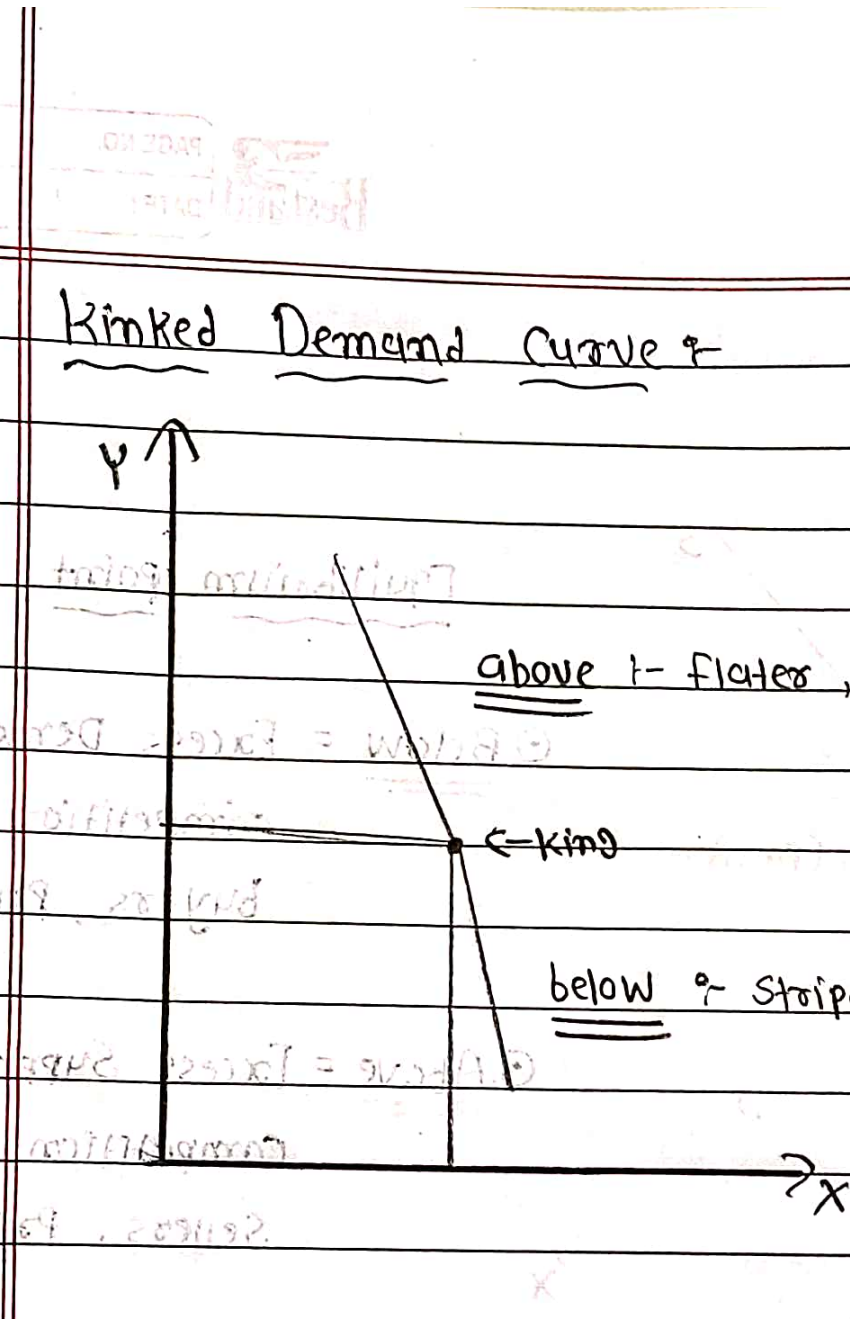 Kinked Demand Curve :-
Y
above :- flater,
← King
below :- Strip
X